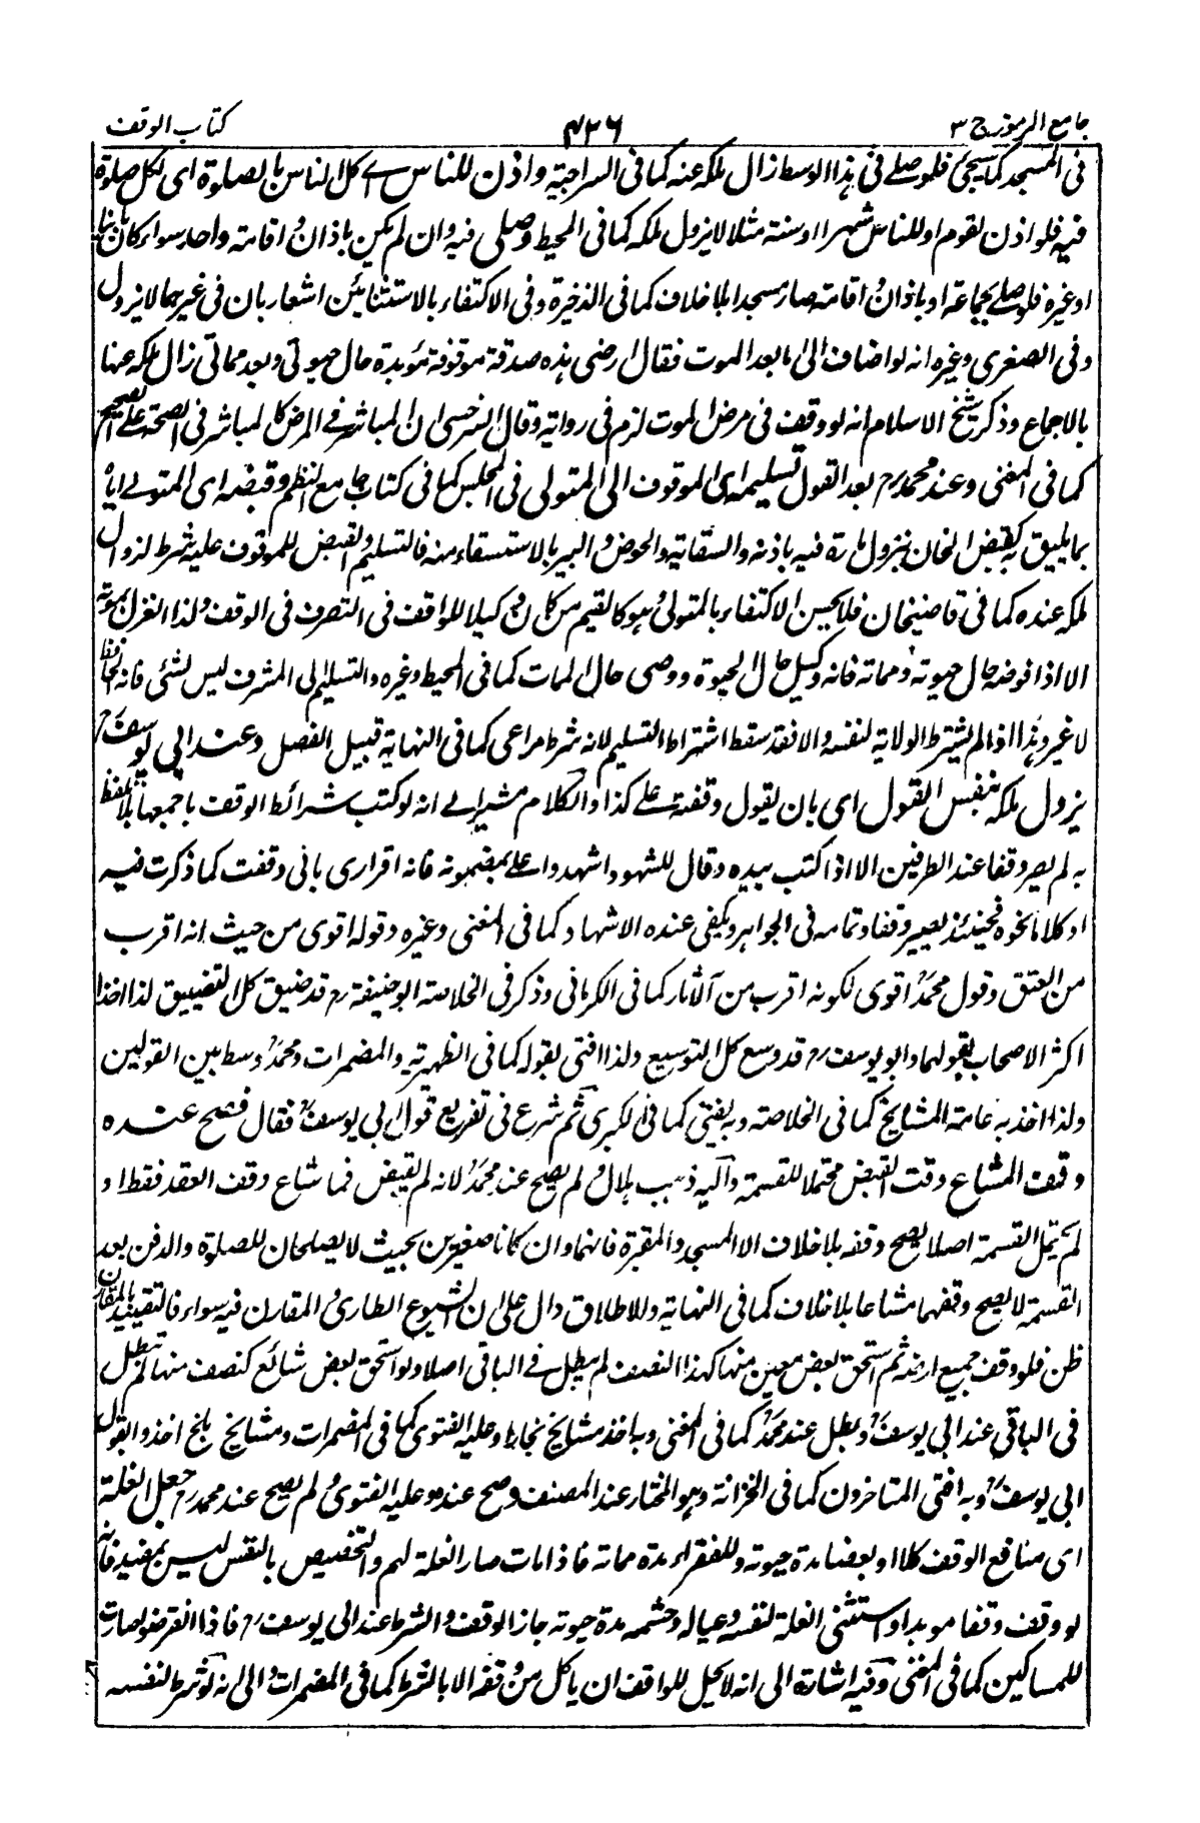 جامع الرموز ج ۳
۴۳۶
كتاب الوقف
فى المسجد كما سيجئ فلو صلے فى هذا الوسط زال ملكه عنه كما فى السراجية و اذن للناس اے كل الناس بالصلوة اى لكل صلوة
فيه فلو اذن لقوم او للناس شهرا او سنة مثلا لا يزول ملكه كما فى المحيط وصلى فيه وان لم يكن باذان و اقامة واحد سواء كان
او غيره فلو صلے بجماعة او باذان و اقامة صار مسجدا بلا خلاف كما فى الذخيرة و فى الاكتفاء بالاستثنائين اشعار بان فى غيرهما لا يزول
و فى الصغرى وغيره انه لو اضاف الى ما بعد الموت فقال ارضى هذه صدقة موقوفة مؤبدة حال حيوتى وبعد مماتى زال ملكه عنها
بالاجماع وذكر شيخ الاسلام انه لو وقف فى مرض الموت لزم فى رواية وقال السرخسى ان المباشر فے المرض كالمباشر فى الصحة على الصحيح
كما فى المغنى وعند محمد رح بعد القول تسليمه اى الموقوف الى المتولى فى المجلس كما فى كتاب جامع النظم و قبضه اى المتولے اياه
بما يليق به كقبض الخان بنزول مارة فيه باذنه والسقاية والحوض و البير بالاستسقاء منه فالتسليم و القبض للموقوف عليه شرط لزوال
ملكه عنده كما فى قاضيخان فلا يحسن الاكتفاء بالمتولى وهو كالقيم من كان وكيلا للواقف فى التصرف فى الوقف ولذا انعزل بموته
الا اذا فوضه حال حيوته و مماته فانه وكيل حال الحيوة ووصى حال الممات كما فى المحيط وغيره والتسليم الى المشرف ليس بشئى فانه الحافظ
لا غير وهذا اذا لم يشترط الولاية لنفسه والا فقد سقط اشتراط التسليم لانه شرط مراعى كما فى النهاية قبيل الفصل وعند ابى يوسف رح
يزول ملكه بنفس القول اى بان يقول وقفته على كذا والكلام مشير الے انه لو كتب شرائط الوقف باجمعها بلا تلفظ
به لم يصر وقفا عند الطرفين الا اذا كتب بيده وقال للشهود اشهدوا على بمضمونه فانه اقرارى بانى وقفت كما ذكرت فيه
او كلاما نحوه فحينئذ يصير وقفا وتمامه فى الجواهر ويكفى عنده الاشهاد كما فى المغنى وغيره وقوله اقوى من حيث انه اقرب
من العتق وقول محمد رح اقوى لكونه اقرب من الآثار كما فى الكرمانى وذكر فى الخلاصة ابو حنيفة رح قد ضيق كل التضييق لذا اخذ
اكثر الاصحاب بقولهما وابو يوسف رح قد وسع كل التوسيع ولذا افتى بقوله كما فى الظهيرية والمضمرات ومحمد رح وسط بين القولين
ولذا اخذ به عامة المشايخ كما فى الخلاصة وبه يفتى كما فى الكبرى ثم شرع فى تفريع قول ابى يوسف رح فقال فصح عنده
وقف المشاع وقت القبض محتملا للقسمة واليه ذهب هلال و لم يصح عند محمد رح لانه لم يقبض فما شاع وقف العقد فقط او
لم يحتمل القسمة اصلا يصح وقفه بلا خلاف الا المسجد والمقبرة فانهما وان كانا صغيرين بحيث لا يصلحان للصلوة والدفن بعد
القسمة لا يصح وقفهما مشاعا بلا خلاف كما فى النهاية والاطلاق دال على ان الشيوع الطارى و المقارن فيه سواء فالتقييد بالمقارن
ظن فلو وقف جميع ارضه ثم استحق بعض معين منها كهذا النصف لم يبطل فے الباقى اصلا ولو استحق بعض شائع كنصف منها لم تبطل
فى الباقى عند ابى يوسف رح وبطل عند محمد رح كما فى المغنى وبه اخذ مشايخ بخارا وعليه الفتوى كما فى المضمرات ومشايخ بلخ اخذوا بقول
ابى يوسف رح وبه افتى المتاخرون كما فى الخزانة وهو المختار عند المصنف وصح عنده وعليه الفتوى و لم يصح عند محمد رح جعل الغلة
اى منافع الوقف كلا او بعضا مدة حيوته وللفقراء مدة مماته فاذا مات صار الغلة لهم والتخصيص بالنفس ليس بمفيد فانه
لو وقف وقفا موبدا و استثنى الغلة لنفسه وعياله وحشمه مدة حيوته جاز الوقف و الشرط عند ابى يوسف رح فاذا انقرضوا صارت
للمساكين كما فى المغنى وفيه اشارة الى انه لا يحل للواقف ان ياكل من وقفه الا بالشرط كما فى المضمرات و الى انه لو شرط لنفسه